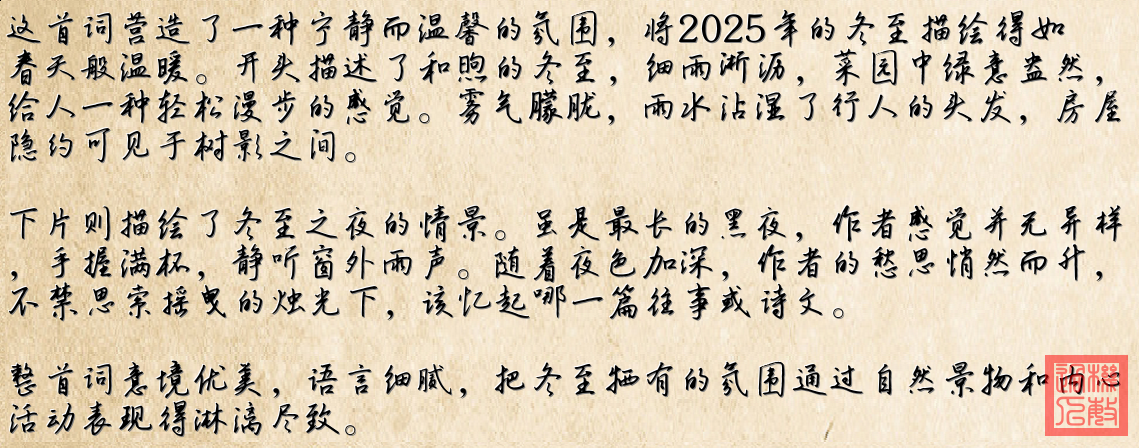 这首词营造了一种宁静而温馨的氛围，将2025年的冬至描绘得如
春天般温暖。开头描述了和煦的冬至，细雨淅沥，菜园中绿意盎然，
给人一种轻松漫步的感觉。雾气朦胧，雨水沾湿了行人的头发，房屋
隐约可见于树影之间。
下片则描绘了冬至之夜的情景。虽是最长的黑夜，作者感觉并无异样
，手握满杯，静听窗外雨声。随着夜色加深，作者的愁思悄然而升，
不禁思索摇曳的烛光下，该忆起哪一篇往事或诗文。
整首词意境优美，语言细腻，把冬至牺有的氛围通过自然景物和内心
活动表现得淋漓尽致。